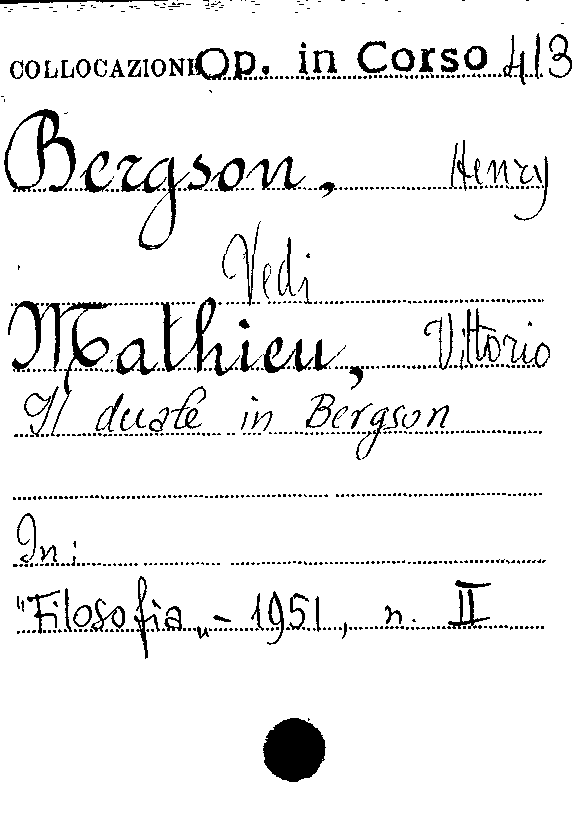 COLLOCAZIONE Op. in Corso 413
Bergson, Henry
Vedi
Mathieu, Vittorio
Il duale in Bergson
In:
"Filosofia„ - 1951, n. II